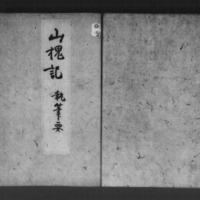 山槐記 執筆要